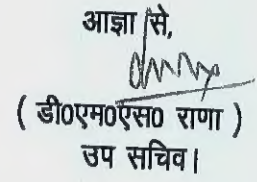 आज्ञा से,
( डी0एम0एस0 राणा )
उप सचिव।